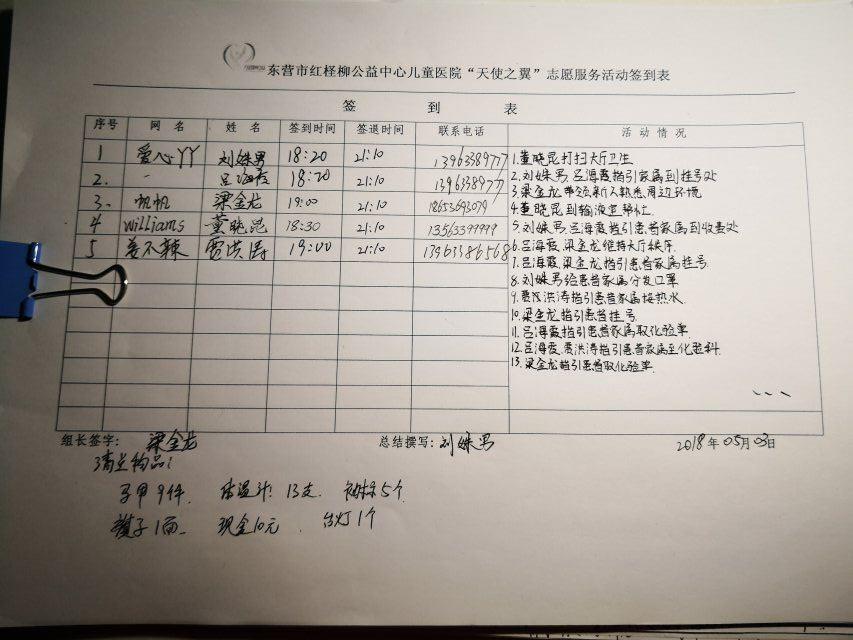 东营市红柽柳公益中心儿童医院“天使之翼”志愿服务活动签到表
签 到 表
序号 网 名 姓 名 签到时间 签退时间 联系电话 活 动 情 况
1 爱心丫丫 刘姝男 18:20 21:10
2. 吕海霞 18:20 21:10
3. 帆帆 梁金龙 19:00 21:10 18653693079
4 williams 董晓昆 18:30 21:10 13563399999
5 姜不辣 贾洪涛 19:00 21:10 13963386568
1.董晓昆打扫大厅卫生
2.刘姝男.吕海霞指引家属到挂号处
3.梁金龙带领新人熟悉周边环境
4.董晓昆到输液室帮忙
5.刘姝男.吕海霞指引患者家属到收费处
6.吕海霞.梁金龙维持大厅秩序
7.吕海霞.梁金龙指引患者家属挂号
8.刘姝男给患者家属分发口罩
9.贾洪涛指引患者家属接热水
10.梁金龙指引患者挂号
11.吕海霞指引患者家属取化验单
12.吕海霞.贾洪涛指引患者家属至化验科
13.梁金龙指引患者取化验单
组长签字: 梁金龙 总结撰写: 刘姝男 2018年05月03日
清点物品:
马甲9件. 体温计:13支. 袖标5个
旗子1面. 现金10元. 台灯1个